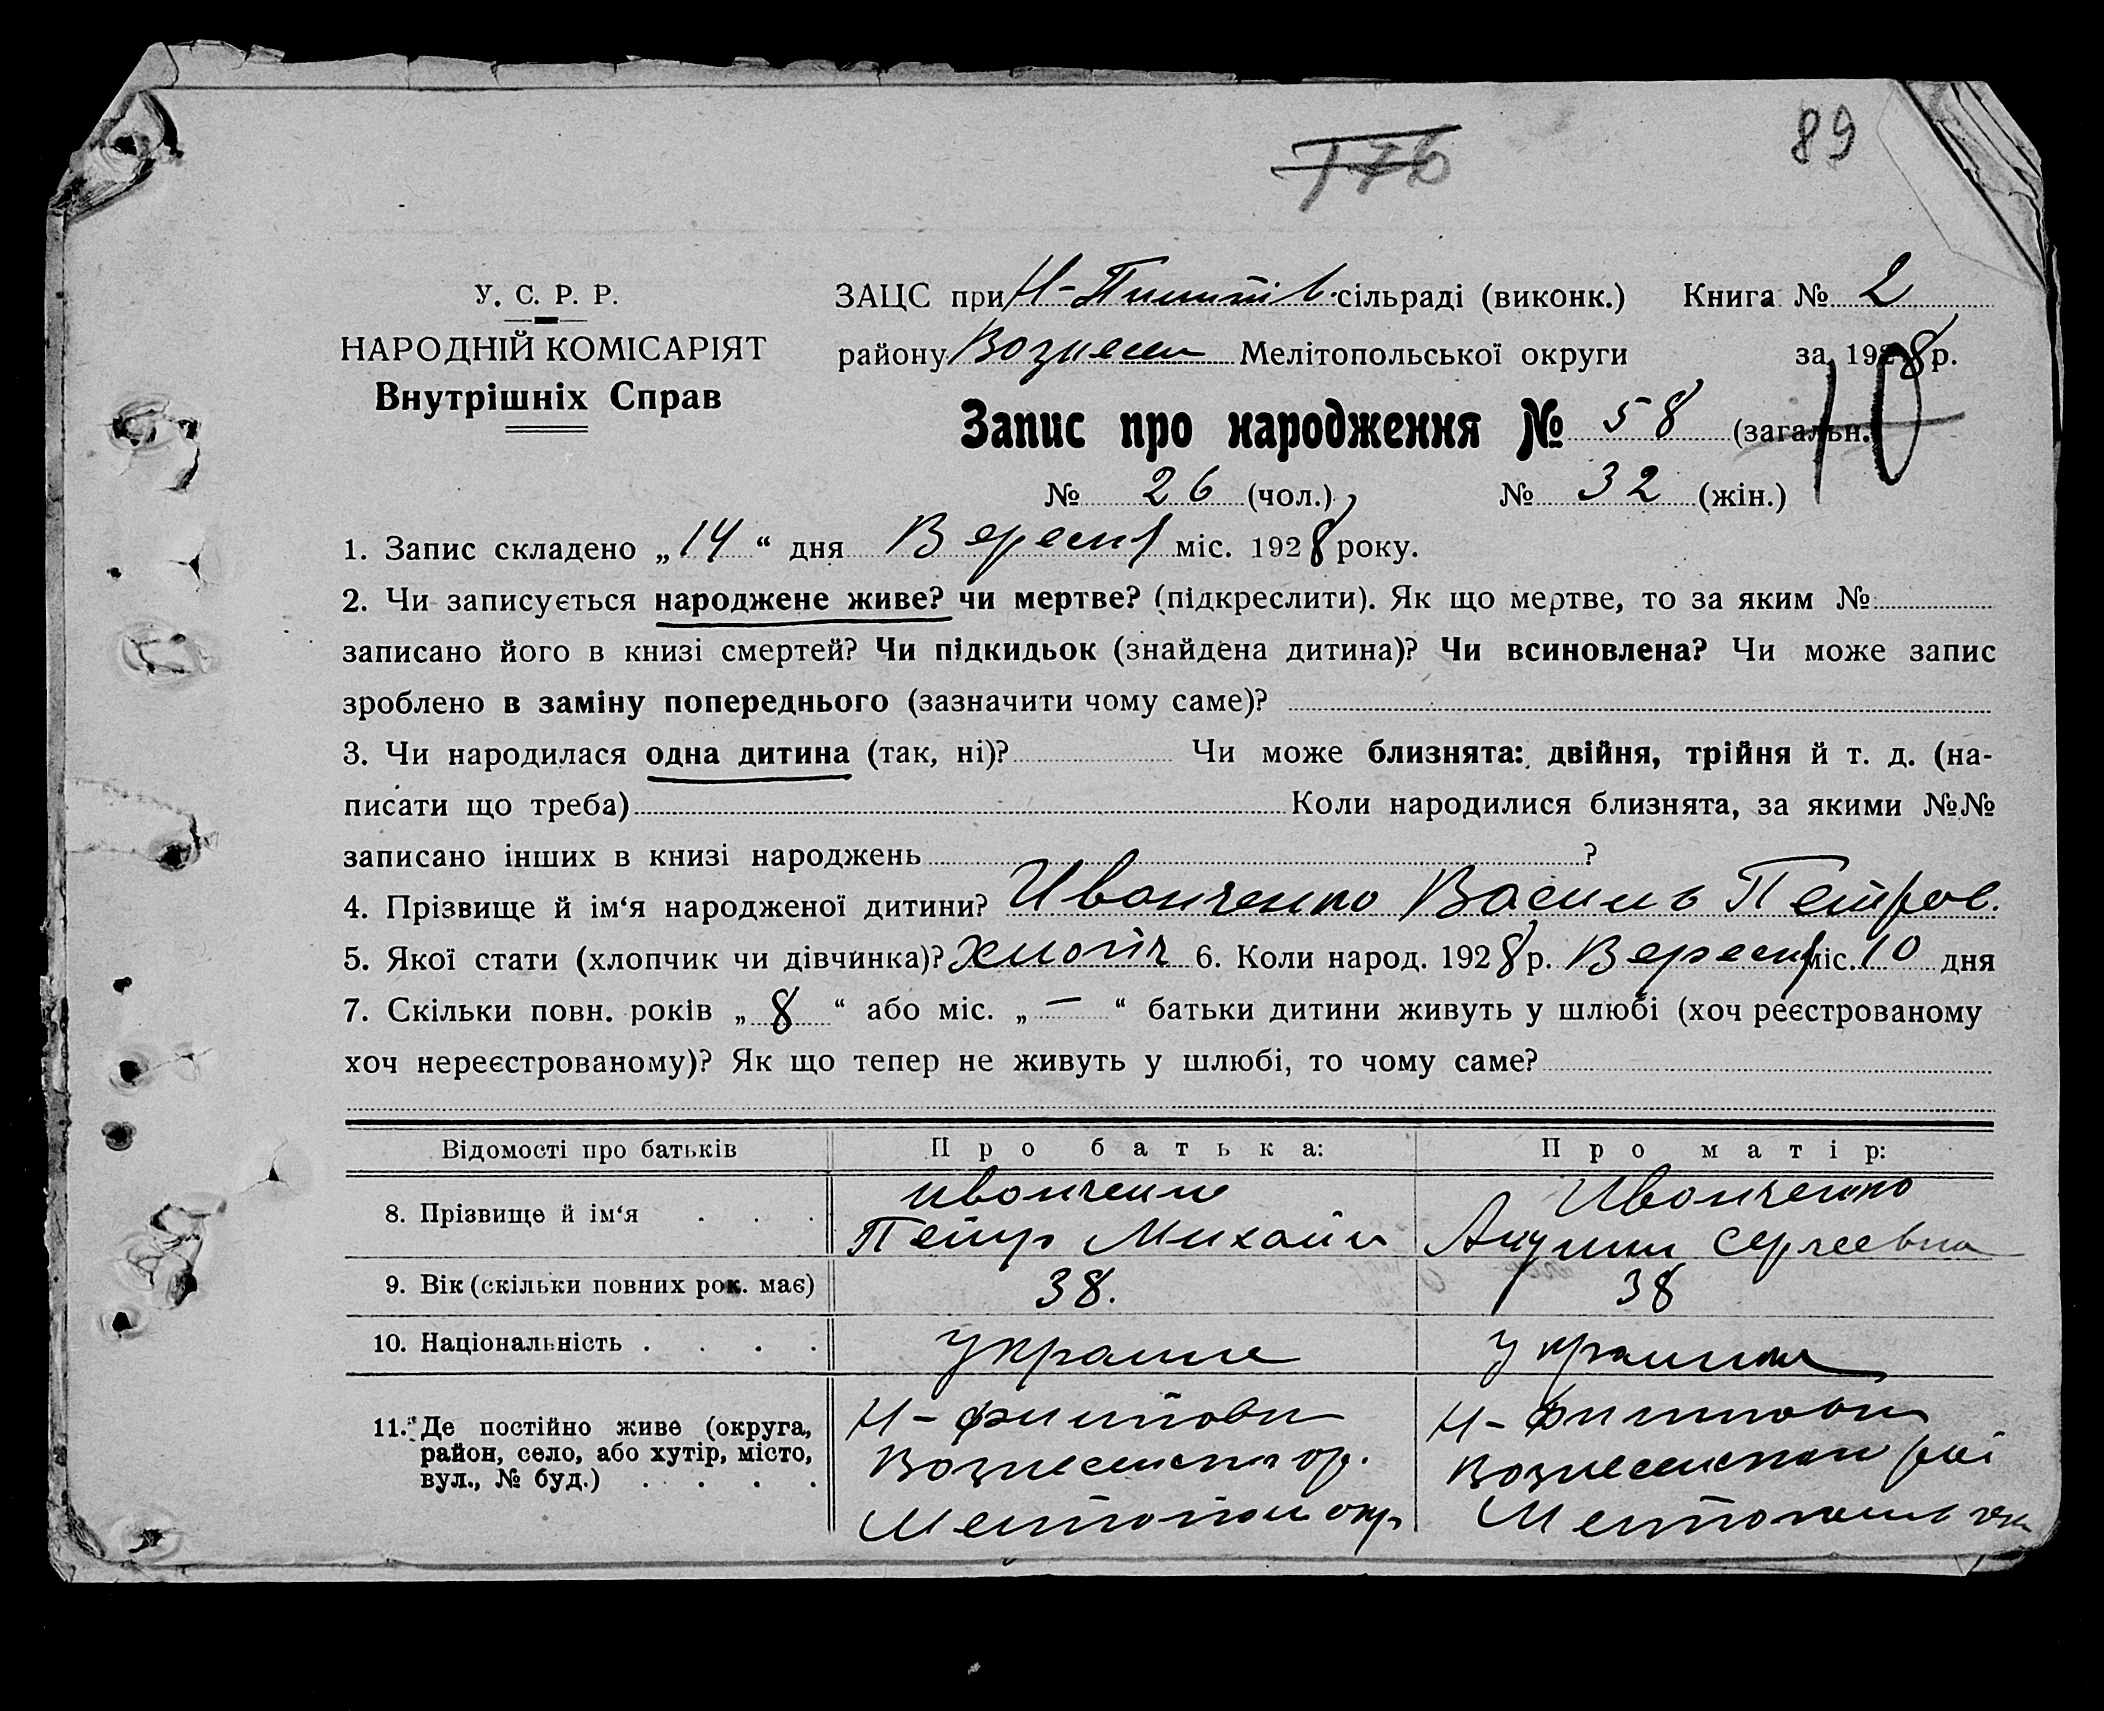 176
89
У. С. Р. Р.
НАРОДНІЙ КОМІСАРІЯТ
Внутрішніх Справ
ЗАЦС при Н- сільраді (виконк.) Книга № 2
району Вознесен Мелітопольської округи за 1928 р.
Запис про народження № 58 (загальн.) 10
№ 26 (чол.) № 32 (жін.)
1. Запис складено „14“ дня Вересня міс. 1928 року.
2. Чи записується народжене живе? чи мертве? (підкреслити). Як що мертве, то за яким №
записано його в книзі смертей? Чи підкидьок (знайдена дитина)? Чи всиновлена? Чи може запис
зроблено в заміну попереднього (зазначити чому саме)?
3. Чи народилася одна дитина (так, ні)? Чи може близнята: двійня, трійня й т. д. (на-
писати що треба) Коли народилися близнята, за якими №№
записано інших в книзі народжень ?
4. Прізвище й ім‘я народженої дитини? Иванченко Василь Петров.
5. Якої стати (хлопчик чи дівчинка)? хлопіч 6. Коли народ. 1928 р. Вересня міс. 10 дня
7. Скільки повн. років „8“ або міс. „—“ батьки дитини живуть у шлюбі (хоч реєстрованому
хоч нереєстрованому)? Як що тепер не живуть у шлюбі, то чому саме?
Відомості про батьків Про батька: Про матір:
8. Прізвище й ім‘я . . . Иванченко Иванченко
Петр Михайл Акулина Сергеевна
9. Вік (скільки повних рок. має) 38. 38
10. Національність . . . . украине украинка
11. Де постійно живе (округа, Н-Филиповка Н-Филиповка
район, село, або хутір, місто, Вознесенск Вознесенскай рай
вул., № буд.) . . . . Мелітопол окр